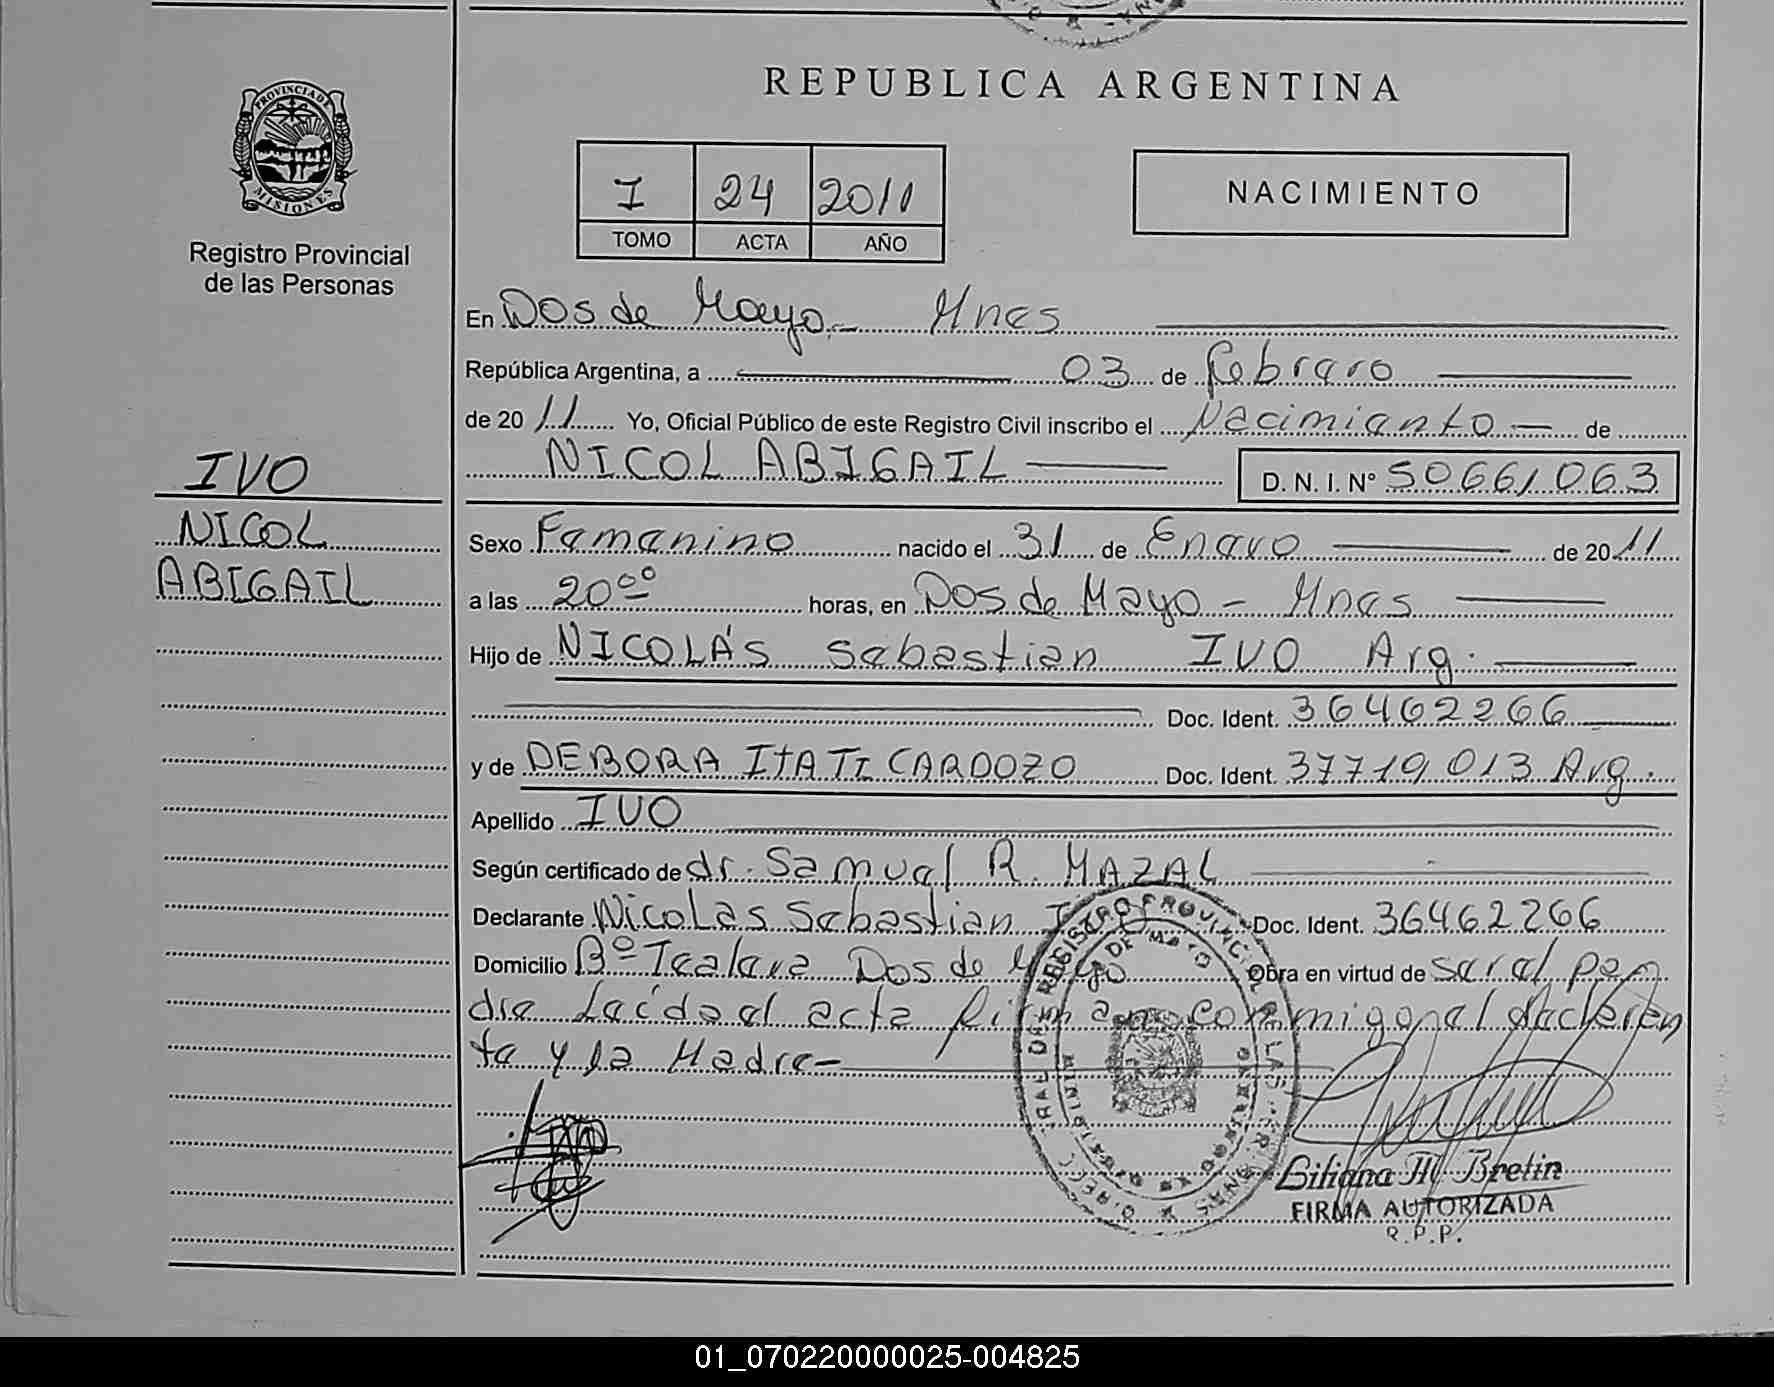 REPUBLICA ARGENTINA
PROVINCIA DE
MISIONES
Registro Provincial
de las Personas
I 24 2011
TOMO ACTA AÑO
NACIMIENTO
En Dos de Mayo - Mnes
República Argentina, a 03 de Febrero
de 20 11 Yo, Oficial Público de este Registro Civil inscribo el Nacimiento - de
NICOL ABIGAIL D. N. I. Nº 50661063
IVO
NICOL
ABIGAIL
Sexo Femenino nacido el 31 de Enero de 20 11
a las 20 ºº horas, en Dos de Mayo - Mnes
Hijo de NICOLÁS Sebastian IVO Arg.
Doc. Ident. 36462266
y de DEBORA ITATI CARDOZO Doc. Ident. 37719013 Arg.
Apellido IVO
Según certificado de dr. Samuel R. MAZAL
Declarante Nicolas Sebastian Doc. Ident. 36462266
Domicilio Bº Dos de Mayo Obra en virtud de ser el pa
dre Leída el acta firman conmigo el declaran
te y la Madre -
Liliana M. Bretin
FIRMA AUTORIZADA
R.P.P.
01_070220000025-004825